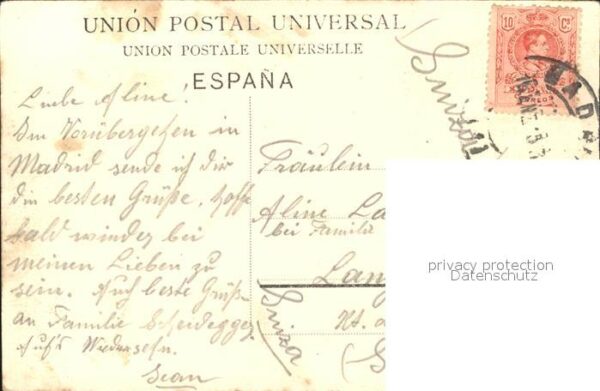 UNIÓN POSTAL UNIVERSAL
UNION POSTALE UNIVERSELLE
ESPAÑA
10 Cs
MADR
Suiza
Liebe Aline!
Im Vorübergehen in
Madrid sende ich dir
die besten Grüße, hoffe
bald wieder bei
meinen Lieben zu
sein. Auch beste Grüße
an Familie Scheidegger
Auf's Wiedersehn.
Jean
Fräulein
Aline La
bei Familie
Lan
Kt.
Suiza
(S
privacy protection
Datenschutz